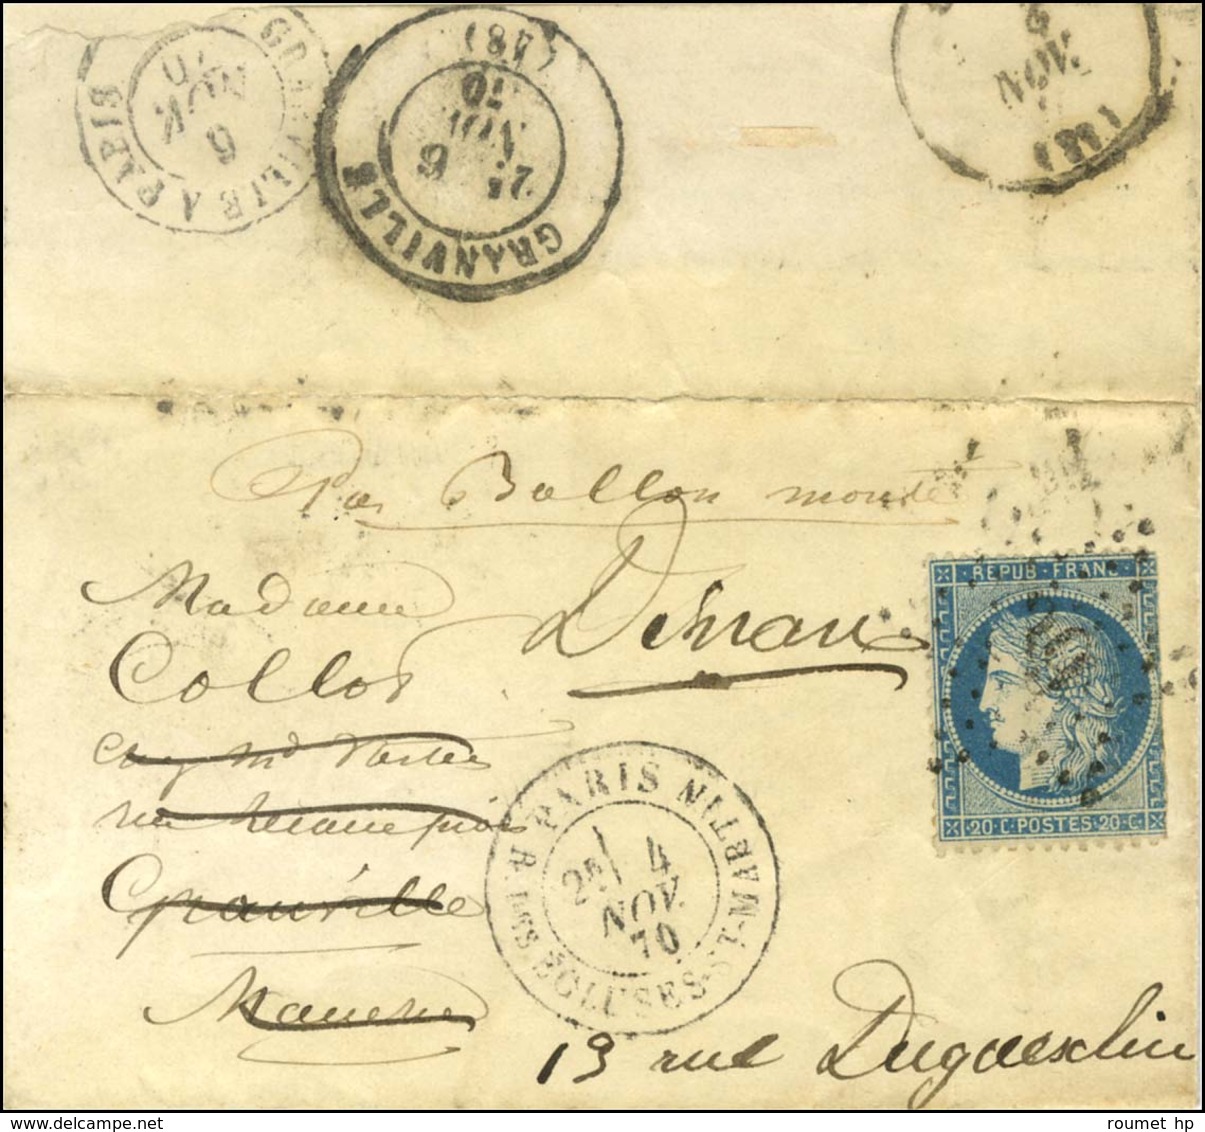 GRANVILLE A PARIS
6
NOV.
70
GRANVILLE
2E 6
NOV.
70
(48)
6
NOV.
Par Ballon monté
Madame
Collot
Dinan
Granville
Manche
PARIS
R. DES ECLUSES-ST-MARTIN
2E 4
NOV.
70
REPUB. FRANC.
20.C.POSTES.20.C.
13 rue Duguesclin
roumet hp